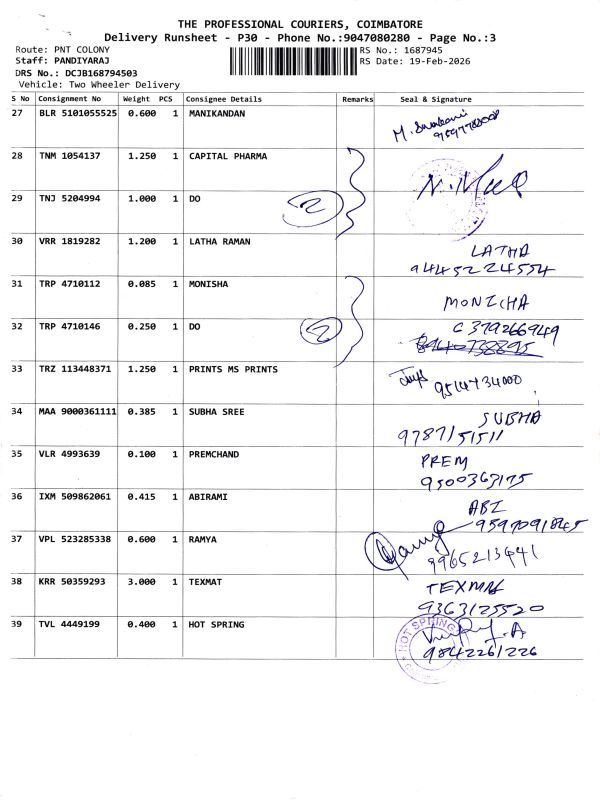 THE PROFESSIONAL COURIERS, COIMBATORE
Delivery Runsheet - P30 - Phone No.:9047080280 - Page No.:3
Route: PNT COLONY RS No.: 1687945
Staff: PANDIYARAJ RS Date: 19-Feb-2026
DRS No.: DCJB168794503
Vehicle: Two Wheeler Delivery
S No Consignment No Weight PCS Consignee Details Remarks Seal & Signature
27 BLR 5101055525 0.600 1 MANIKANDAN
28 TNM 1054137 1.250 1 CAPITAL PHARMA
29 TNJ 5204994 1.000 1 DO 2
30 VRR 1819282 1.200 1 LATHA RAMAN LATHA
94452 24554
31 TRP 4710112 0.085 1 MONISHA MONICHA
32 TRP 4710146 0.250 1 DO 2 6379266949
33 TRZ 113448371 1.250 1 PRINTS MS PRINTS 9514734000
34 MAA 9000361111 0.385 1 SUBHA SREE SUBHA
9787151511
35 VLR 4993639 0.100 1 PREMCHAND PREM
9500363175
36 IXM 509862061 0.415 1 ABIRAMI ABI
9597091845
37 VPL 523285338 0.600 1 RAMYA 9965213441
38 KRR 50359293 3.000 1 TEXMAT
9363125520
39 TVL 4449199 0.400 1 HOT SPRING HOT SPRING
9842261226